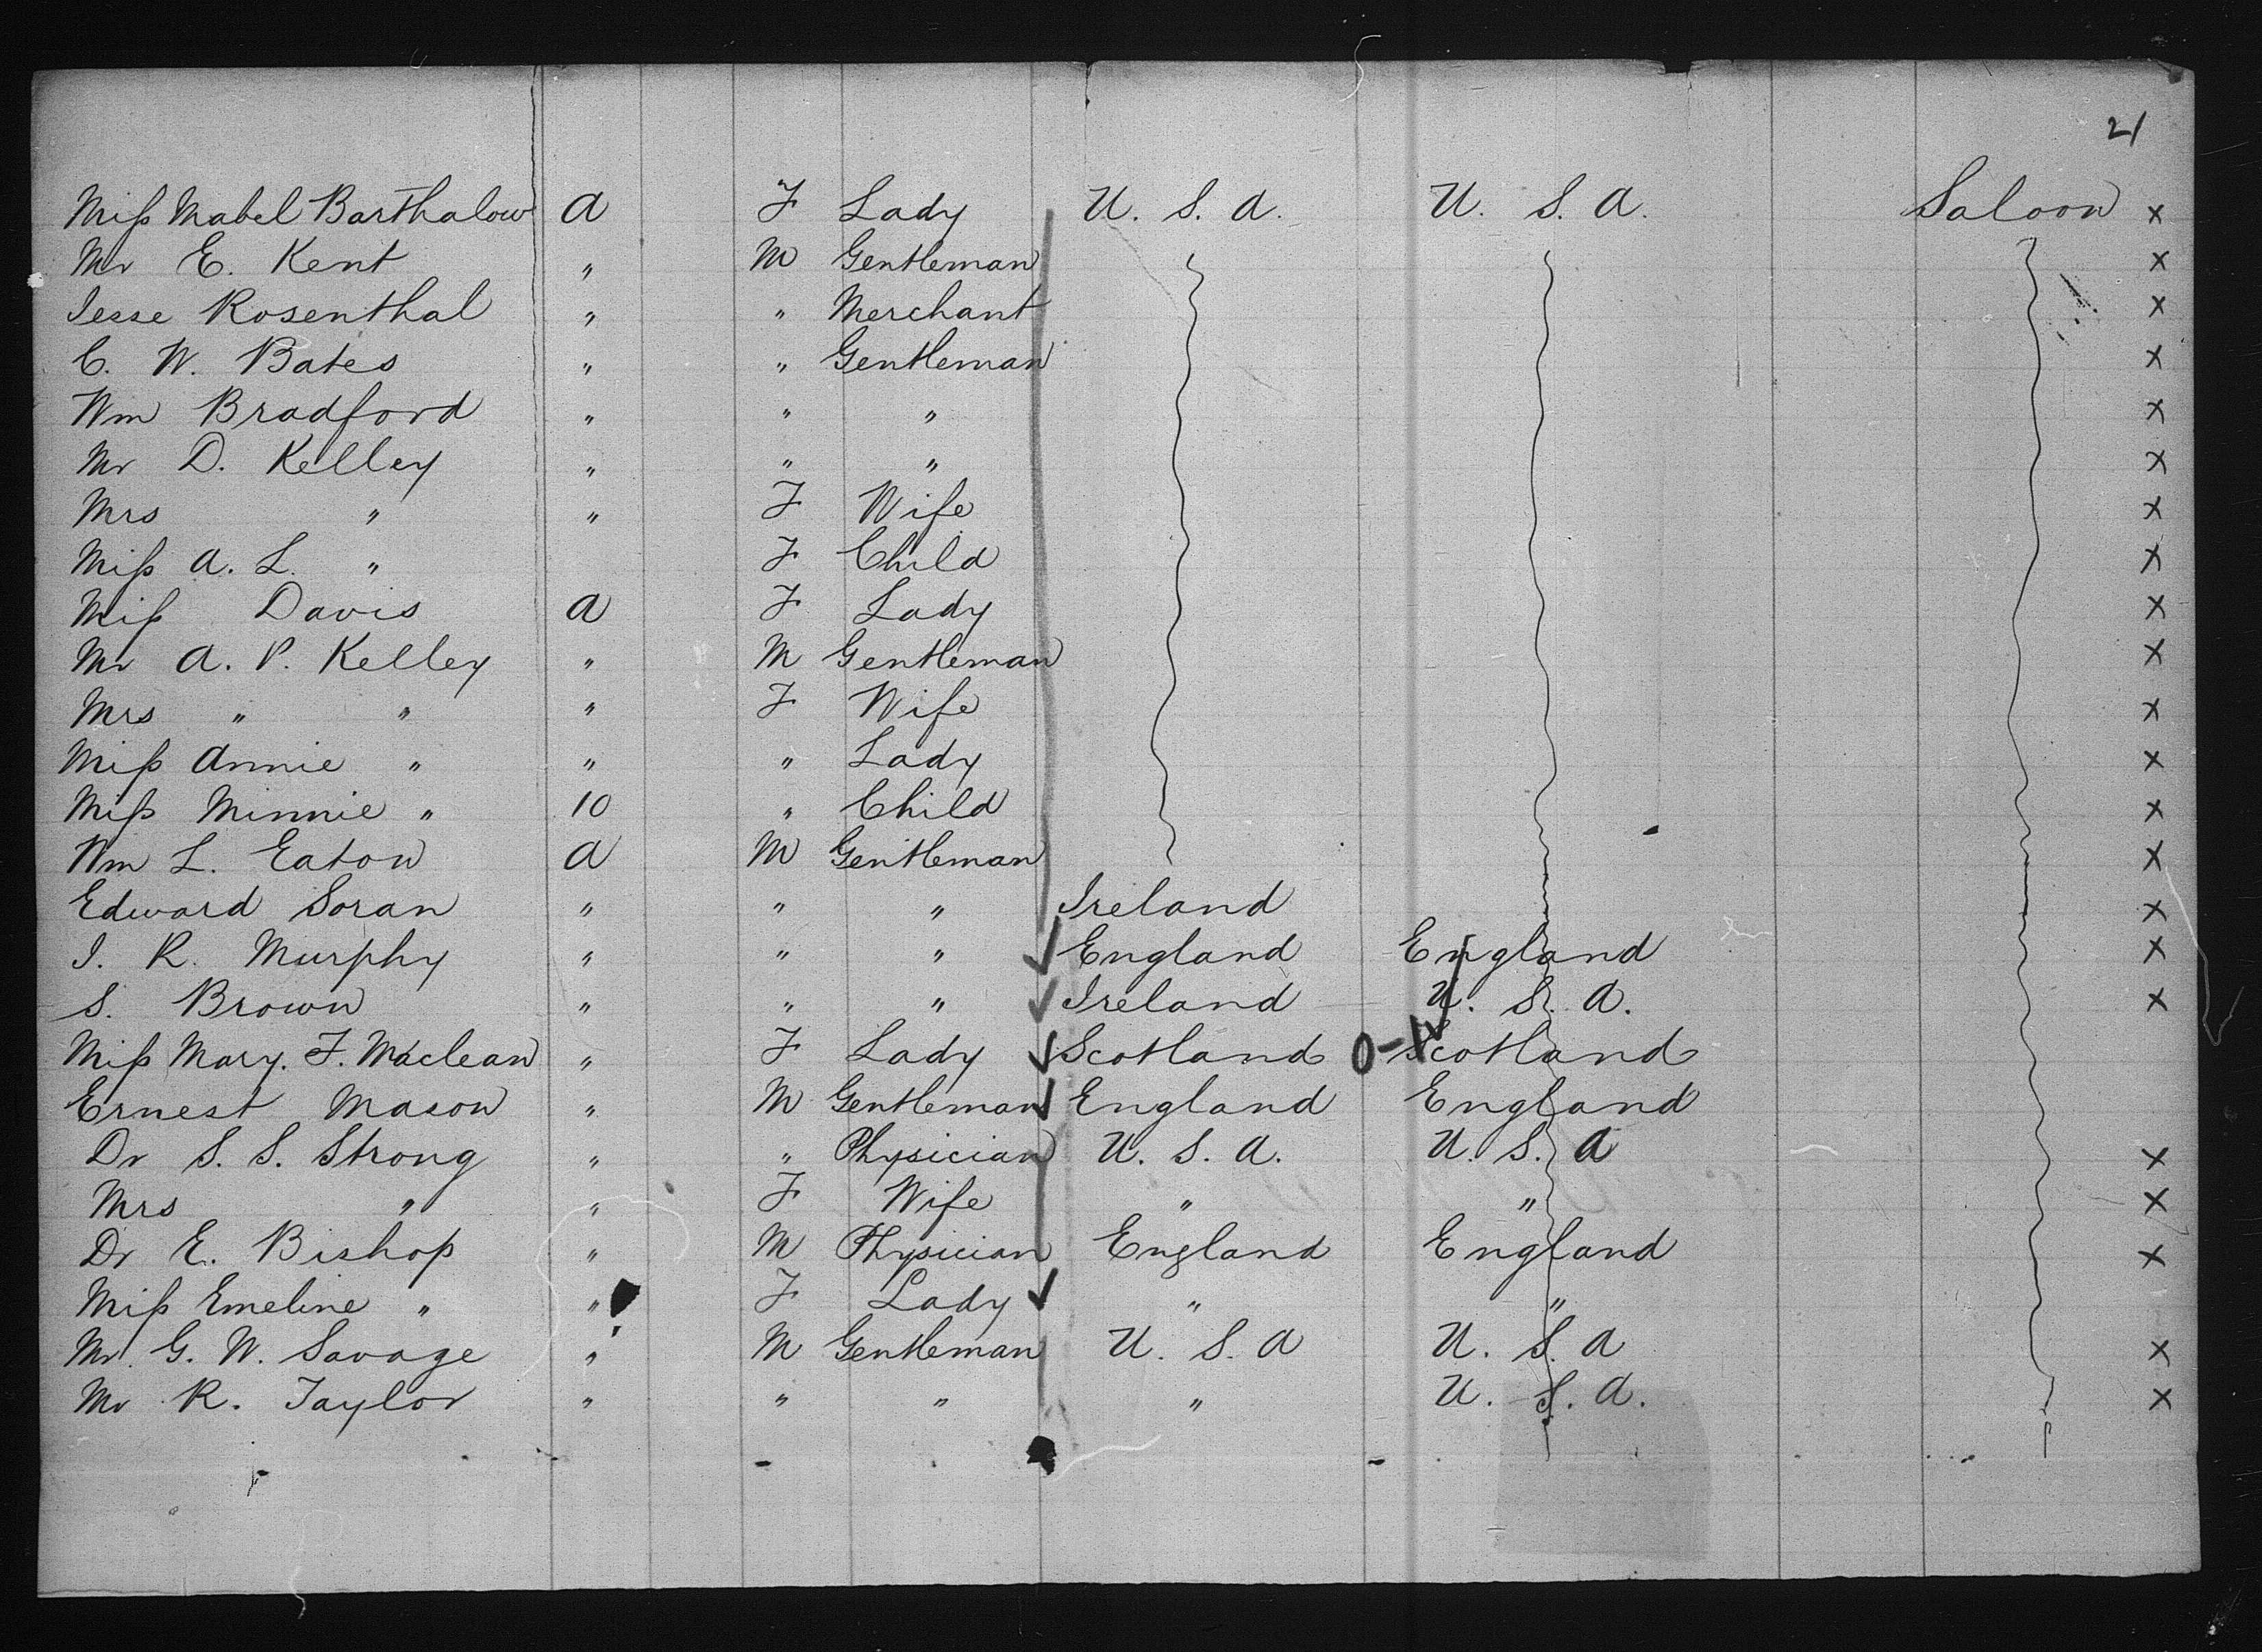 21
Miss Mabel Barthalow a F Lady U. S. a. U. S. a. Saloon x
Mr E. Kent " M Gentleman x
Jesse Rosenthal " " Merchant x
C. W. Bates " " Gentleman x
Wm Bradford " " " x
Mr D. Kelley " " " x
Mrs " " F Wife x
Miss A. L. " F Child x
Miss Davis a F Lady x
Mr A. P. Kelley " M Gentleman x
Mrs " " " F Wife x
Miss Annie " " " Lady x
Miss Minnie " 10 " Child x
Wm L. Eaton a M Gentleman x
Edward Soran " " " Ireland x
J. R. Murphy " " " ✓ England England x
S. Brown " " " ✓ Ireland U. S. a. x
Miss Mary. F. Maclean " F Lady ✓ Scotland Scotland
Ernest Mason " M Gentleman ✓ England England
Dr S. S. Strong " " Physician U. S. a. U. S. a x
Mrs " " F Wife " " x
Dr E. Bishop " M Physician England England x
Miss Emeline " " F Lady ✓ " "
Mr. G. W. Savage " M Gentleman U. S. a U. S. a x
Mr R. Taylor " " " " U. S. a. x